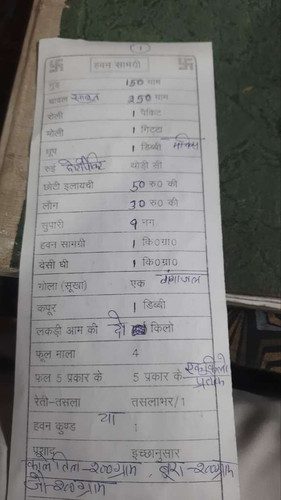 1
हवन सामग्री
गुड़ 150 ग्राम
चावल साबुत 250 ग्राम
रोली 1 पैकेट
मोली 1 गिट्टा
धूप 1 डिब्बी माचिस
रुई थोड़ी सी
छोटी इलायची 50 रु0 की
लौंग 20 रु0 की
सुपारी 9 नग
हवन सामग्री 1 कि0ग्रा0
देसी घी 1 कि0ग्रा0
गोला (सूखा) एक गंगाजल
कपूर 1 डिब्बी
लकड़ी आम की दो किलो
फूल माला 4
फल 5 प्रकार के 5 प्रकार के एक किलो प्रत्येक
रेती-तसला तसलाभर/1
या
हवन कुण्ड 1
प्रशाद इच्छानुसार
काले तिल-200ग्राम, बूरा-200ग्राम
जौ-200ग्राम